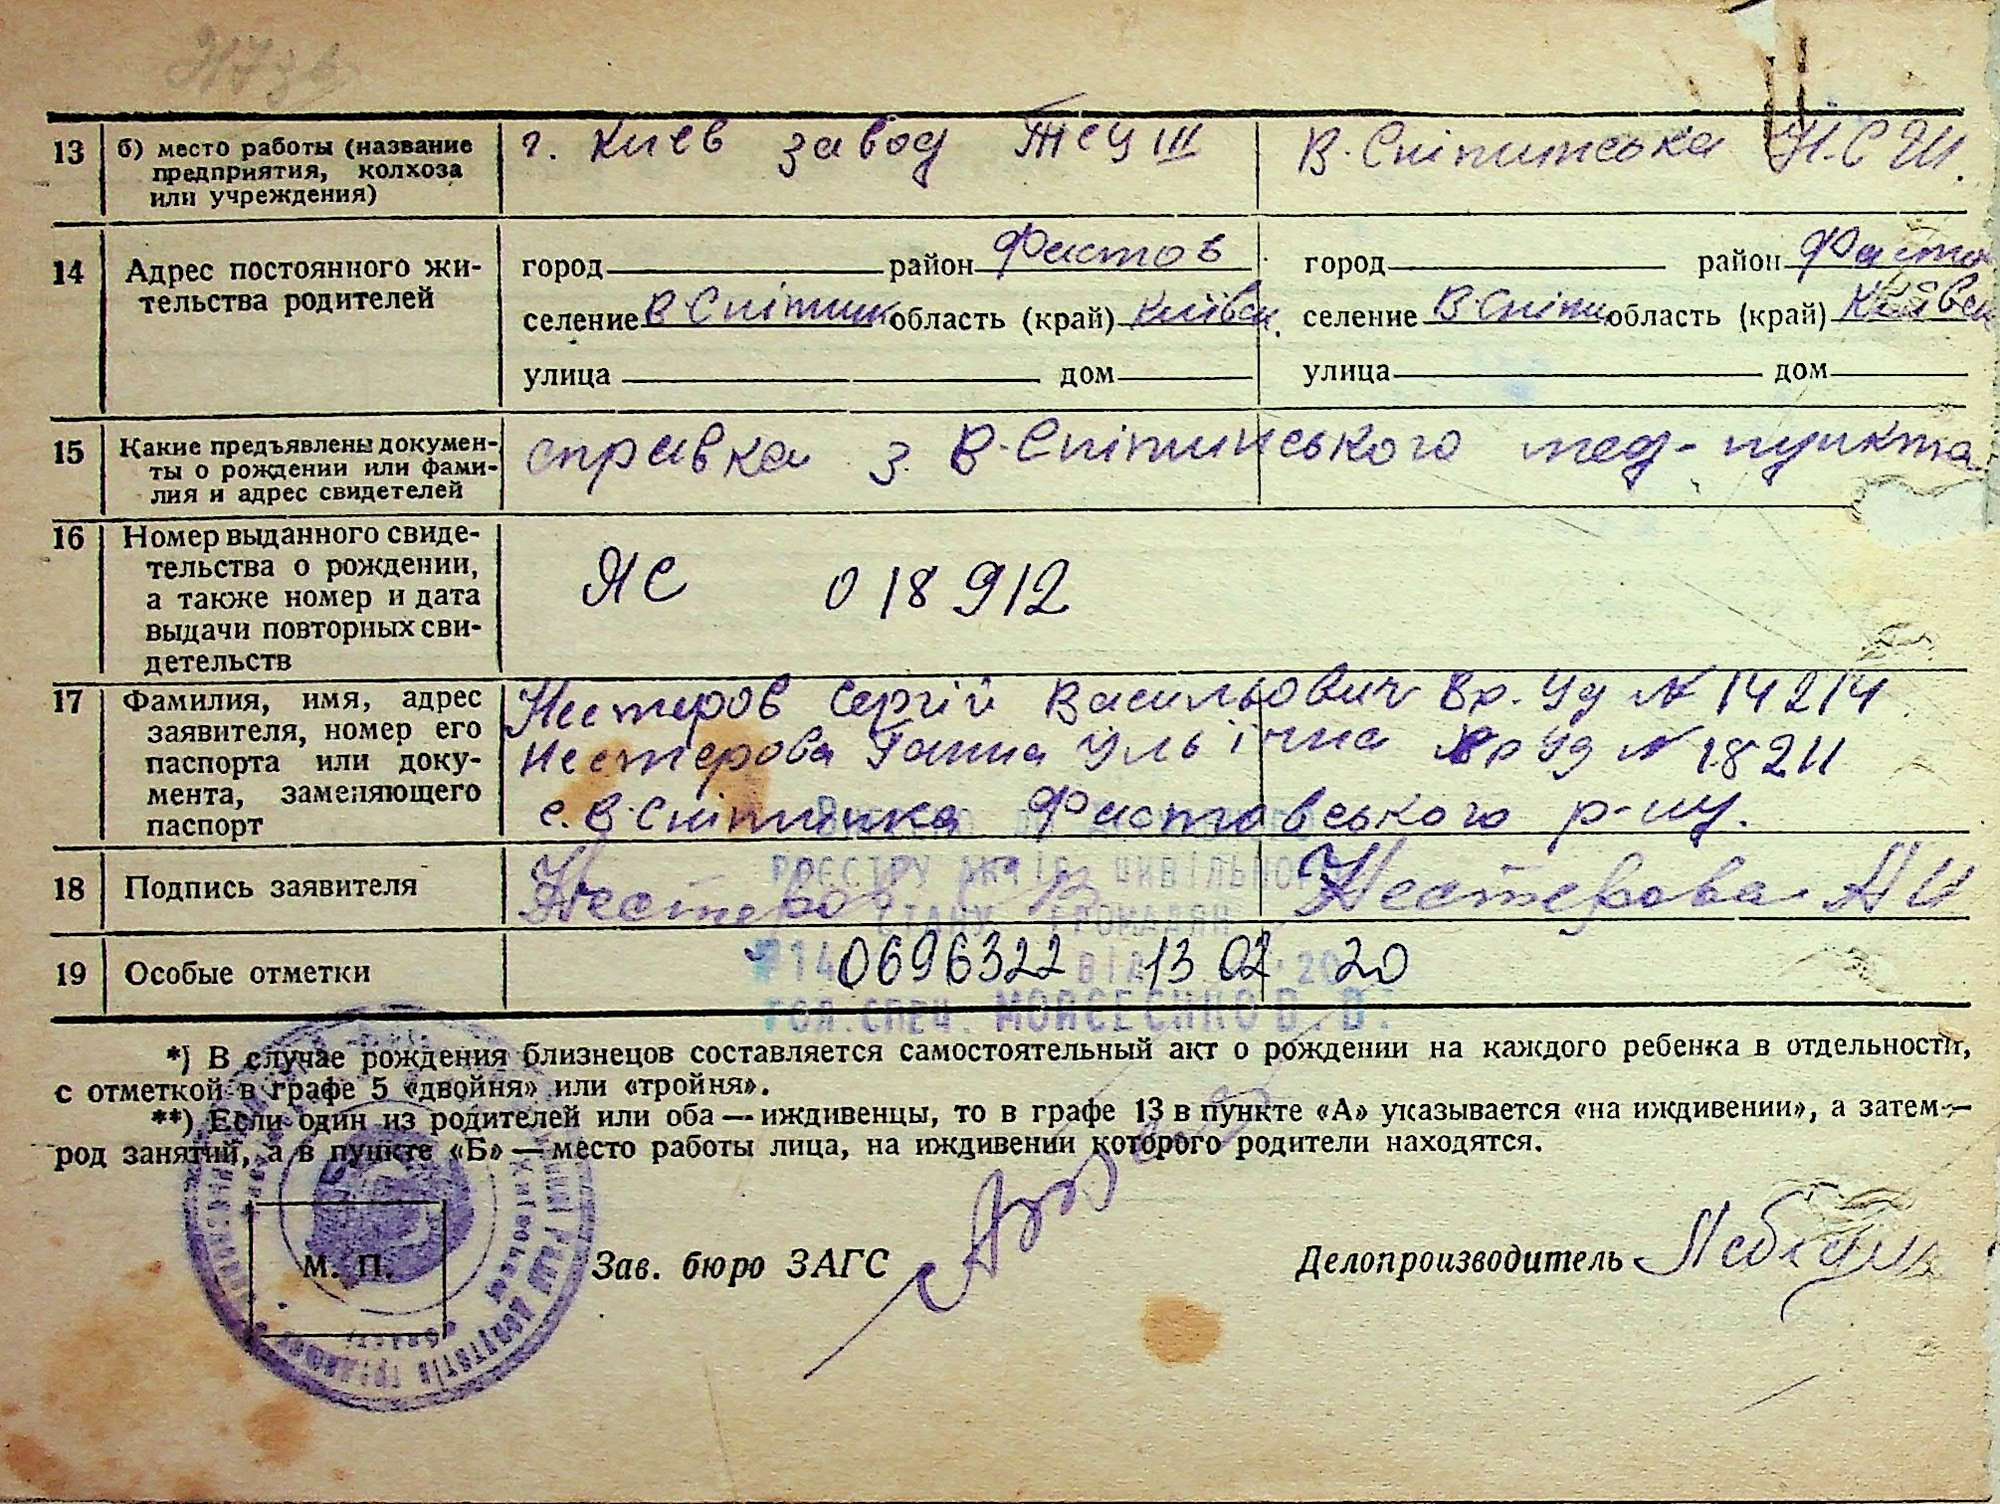 13 б) место работы (название г. Киев завод Тец III В-Снітинська Н.С.Ш.
предприятия, колхоза
или учреждения)
14 Адрес постоянного жи- город район Фастов город район Фасто
тельства родителей
селение В-Снітинк область (край) Київськ. селение В-Сніти область (край) Київськ
улица дом улица дом
15 Какие предъявлены докумен- справка з В-Снітинського мед-пункта
ты о рождении или фами-
лия и адрес свидетелей
16 Номер выданного свиде-
тельства о рождении,
а также номер и дата ЯС 018912
выдачи повторных сви-
детельств
17 Фамилия, имя, адрес Нестеров Сергій Васильович Вр. Уд № 14214
заявителя, номер его Нестерова Ганна Ульїчна Вр Уд № 18211
паспорта или доку-
мента, заменяющего с. В-Снітинка Фастовського р-ну.
паспорт
РЕЄСТРУ АКТІВ ЦИВІЛЬНОГО
18 Подпись заявителя Нестеров С В Нестерова А И
СТАНУ ГРОМАДЯН
19 Особые отметки №14 0696322 ВІД 13 02 20 20
ГОЛ.СПЕЦ. МОЙСЕЄНКО В.В.
*) В случае рождения близнецов составляется самостоятельный акт о рождении на каждого ребенка в отдельности,
с отметкой в графе 5 «двойня» или «тройня».
**) Если один из родителей или оба — иждивенцы, то в графе 13 в пункте «А» указывается «на иждивении», а затем —
род занятий, а в пункте «Б» — место работы лица, на иждивении которого родители находятся.
М. П. Зав. бюро ЗАГС Делопроизводитель